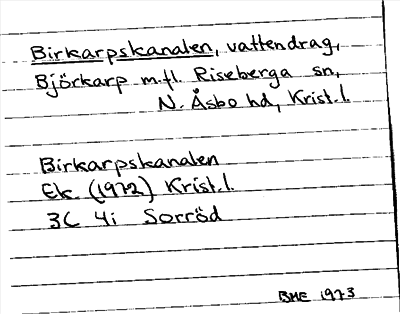 Birkarpskanalen, vattendrag,
Björkarp m.fl. Riseberga sn,
N. Åsbo hd, Krist.l.
Birkarpskanalen
Ek. (1972) Krist.l.
3C 4i Sorröd
BME 1973